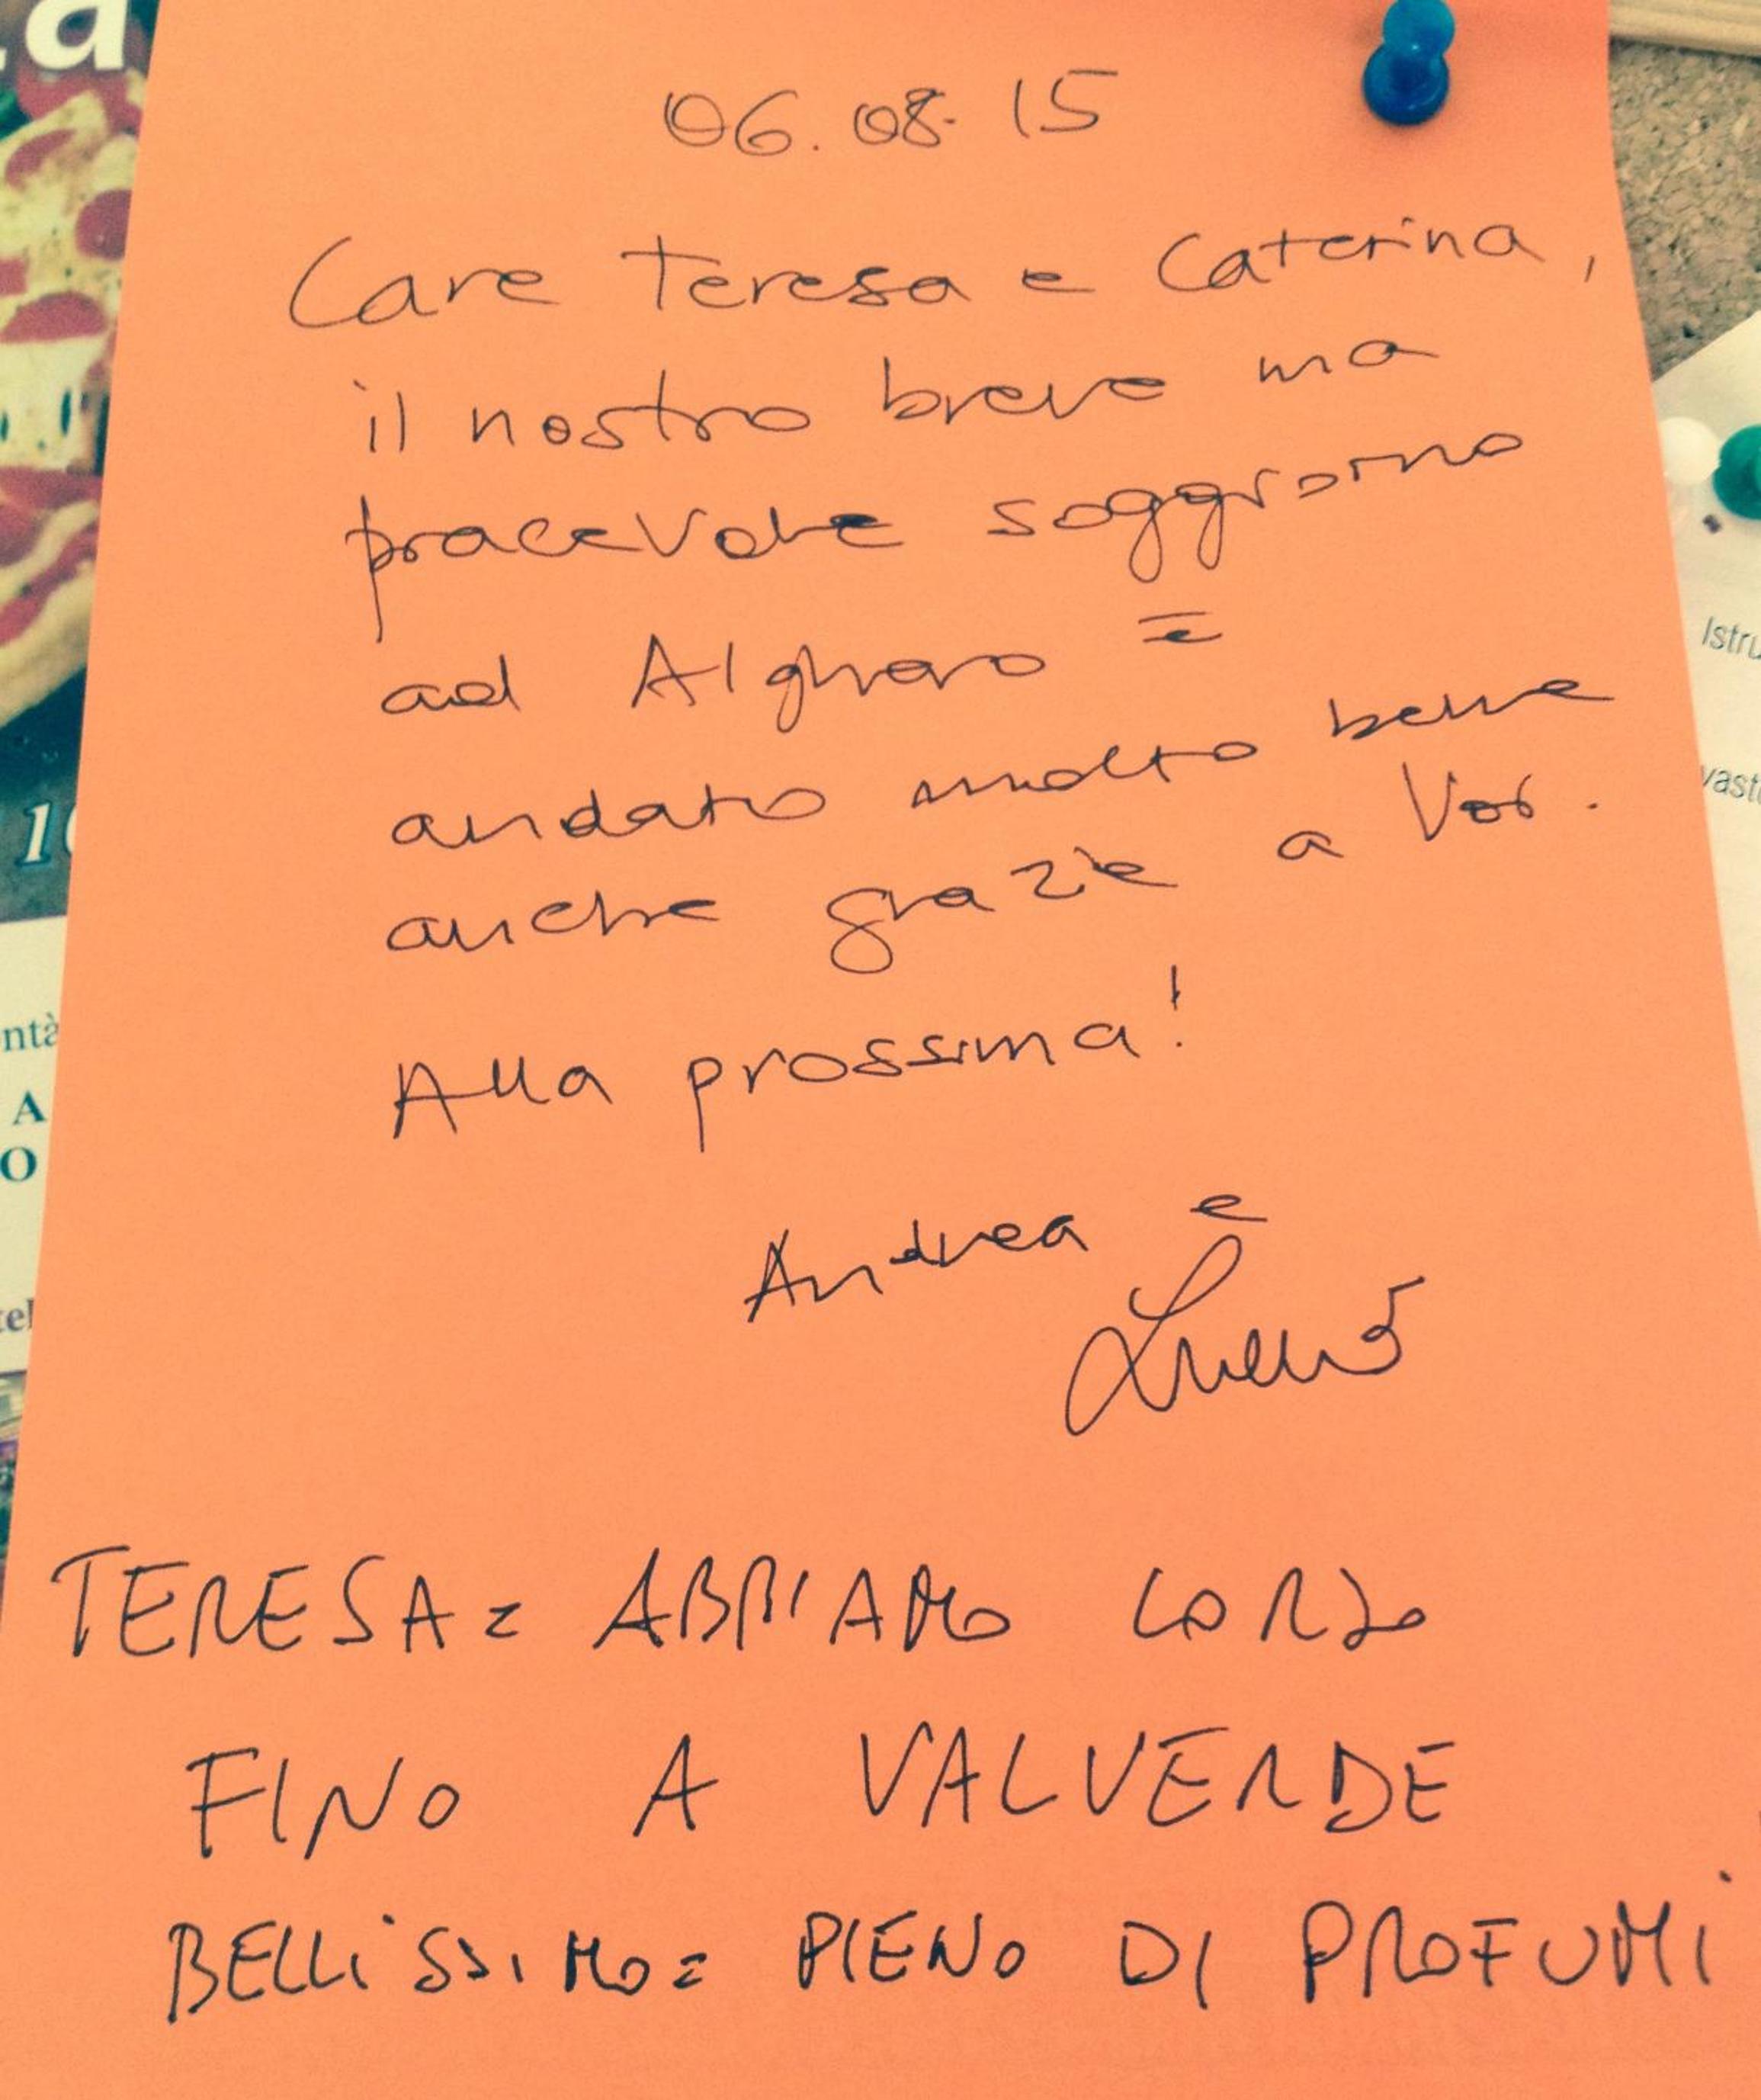 06.08.15
Care Teresa e Caterina,
il nostro breve ma
piacevole soggiorno
ad Alghero è
andato molto bene
anche grazie a Voi.
Alla prossima!
Andrea e
TERESA: ABBIAMO CORSO
FINO A VALVERDE
BELLISSIMO: PIENO DI PROFUMI
Istru
ntà
A
O
tel